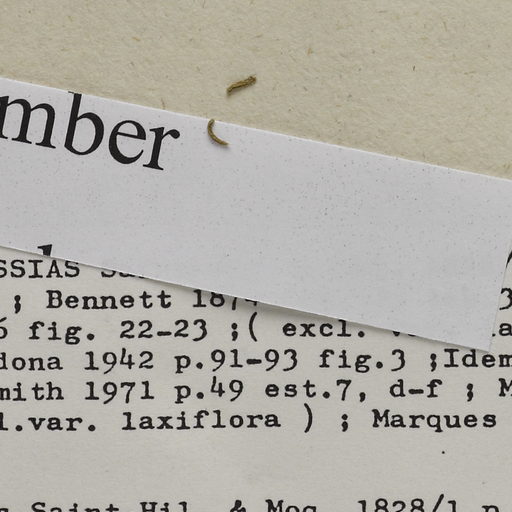 mber
SSIAS
; Bennett 187
6 fig. 22-23 ;( excl.
dona 1942 p.91-93 fig.3 ;Idem
mith 1971 p.49 est.7, d-f ; M
l.var. laxiflora ) ; Marques
Saint Hil. & Moq. 1828/1 p